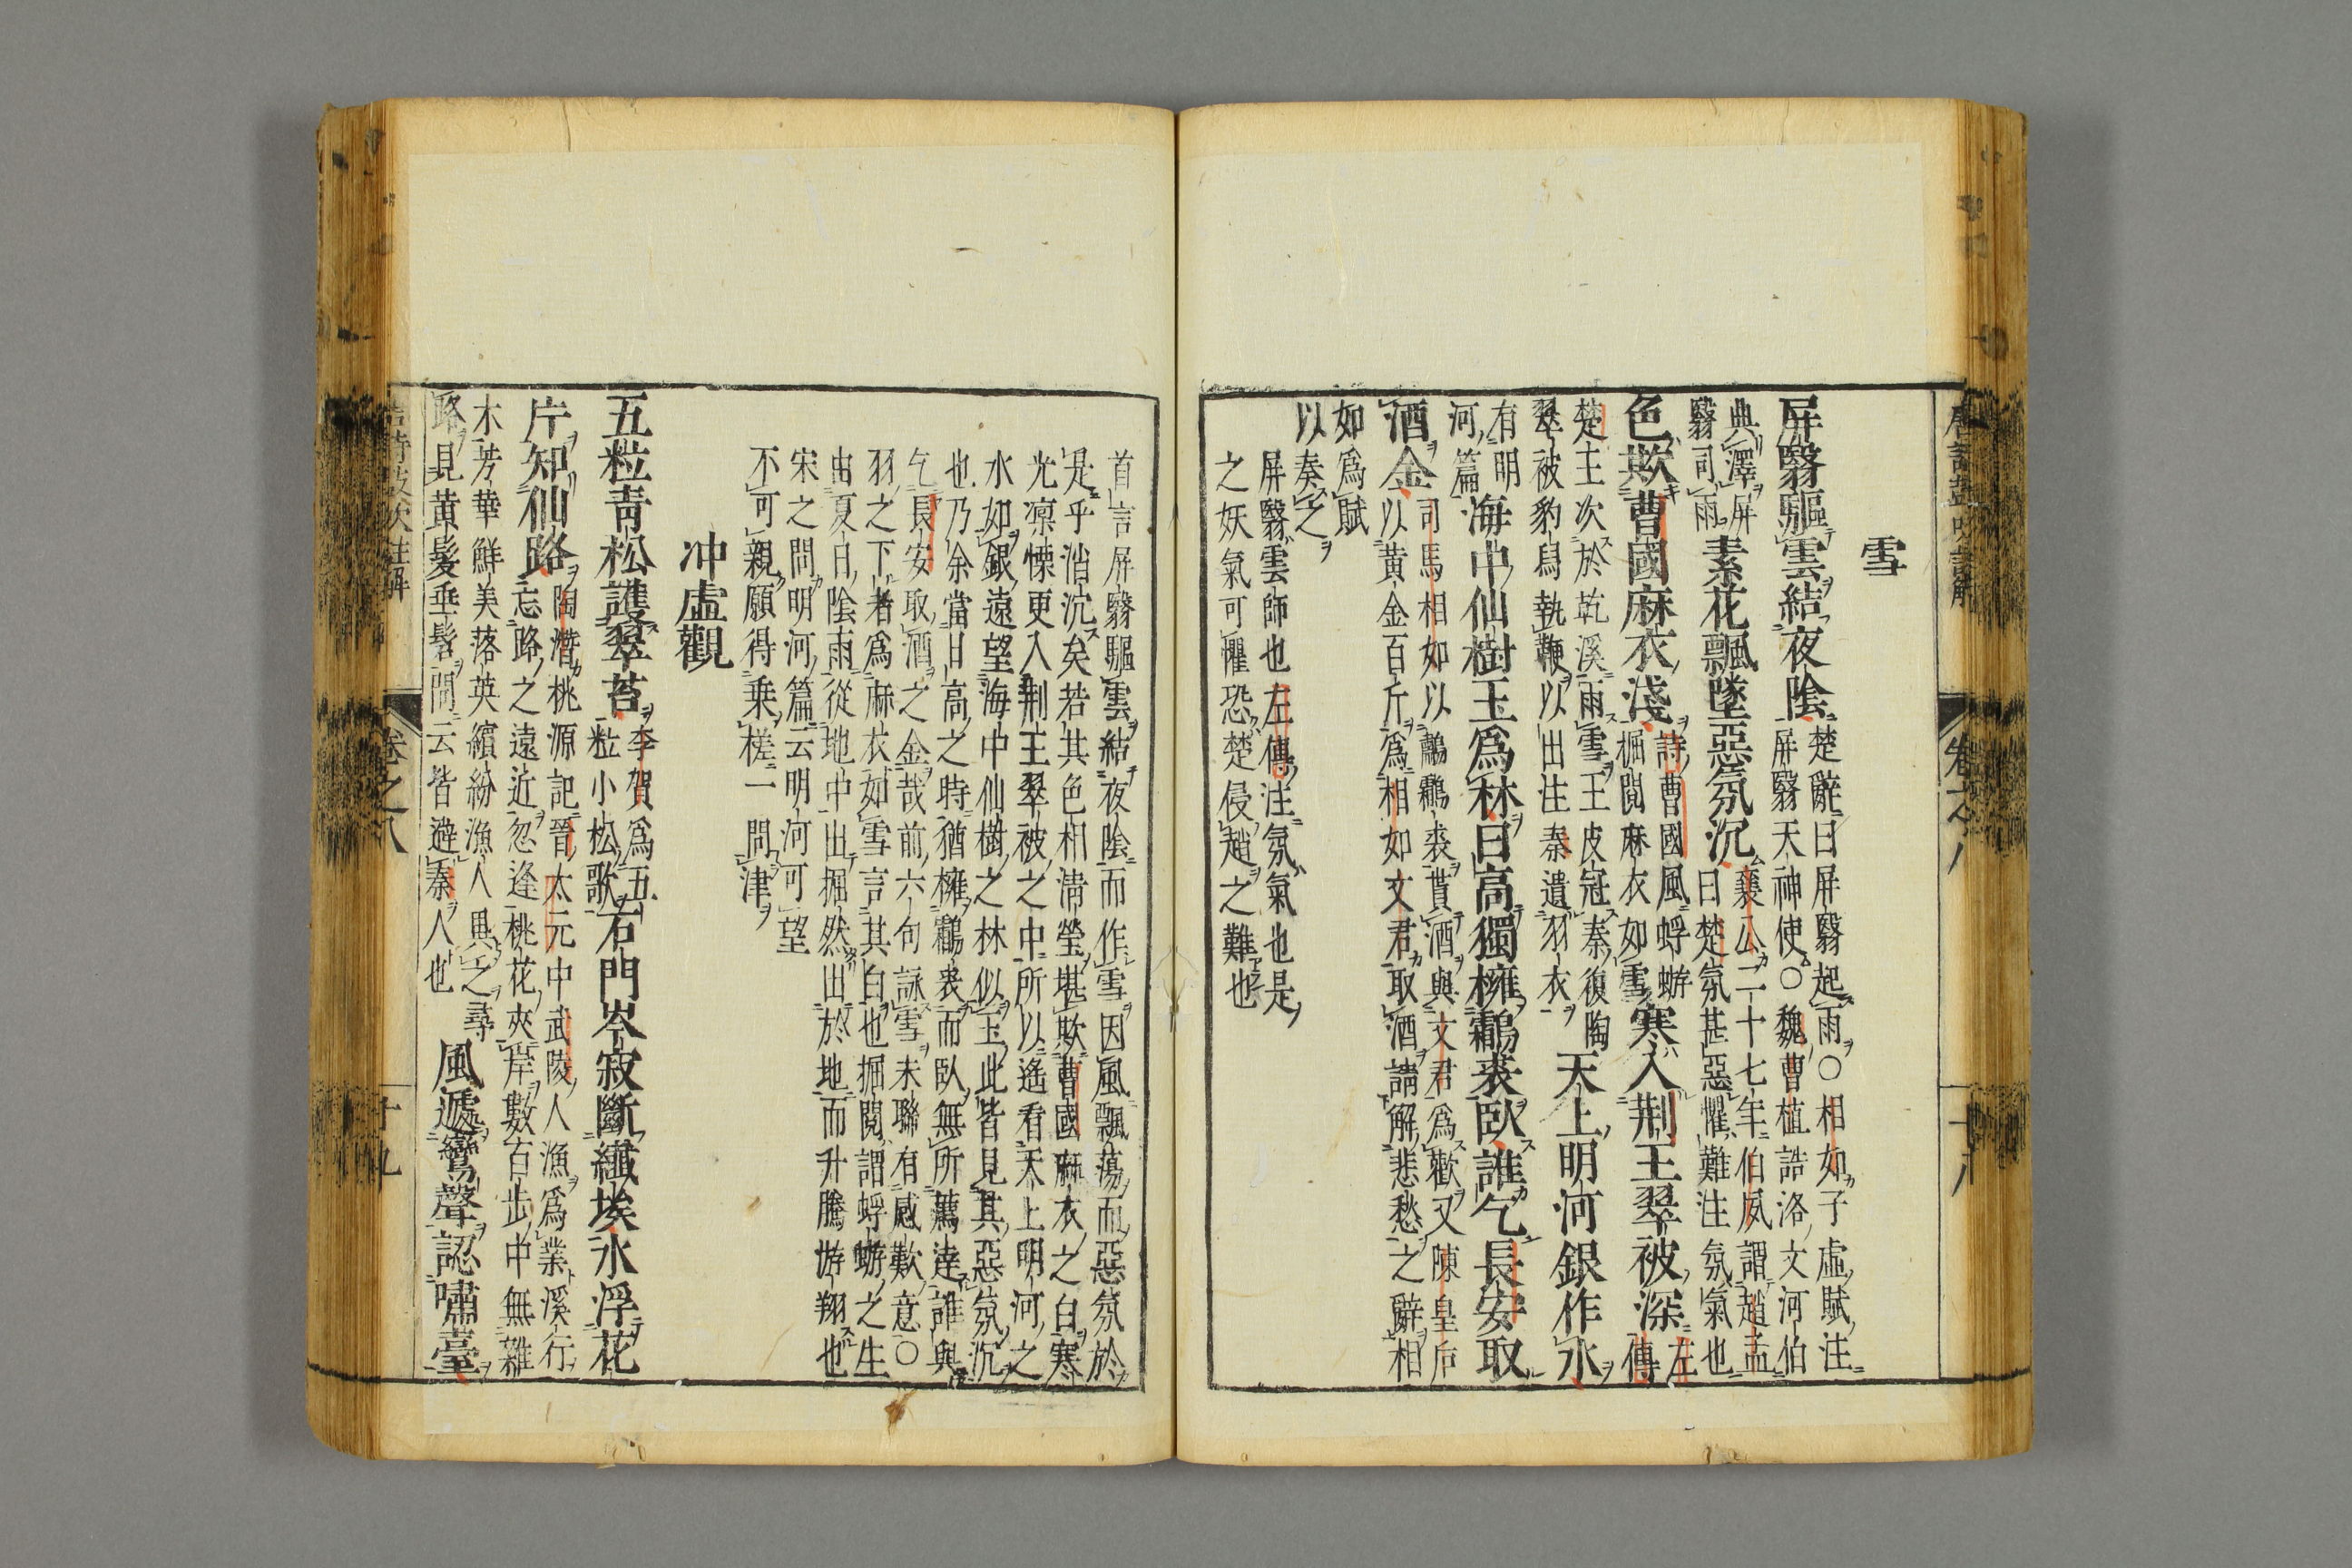 雪
屏翳驅雲結夜陰楚辭曰屏翳起雨○相如子虛賦注
屏翳天神使○魏曹植詰洛文河伯
典澤屏
翳司雨素花飄墜惡氛沉襄公二十七年伯夙謂趙孟
曰楚氛甚惡懼難注氛氣也
色欺曹國麻衣淺詩曹國風蜉蝣
掘閱麻衣如雪寒入荆王翠被深左
傳
楚王次於乾溪雨雪王皮冠秦復陶
翠被豹舄執鞭以出注秦遺羽衣天上明河銀作水
有明
河篇海中仙樹玉爲林日高獨擁鷫裘臥誰乞長安取
酒金司馬相如以鷫鸘裘貰酒與文君爲歡又陳皇后
以黃金百斤爲相如文君取酒請解悲愁之辭相
如爲賦
以奏之
屏翳雲師也左傳注氛氣也是
之妖氣可懼恐楚侵趙之難也
卷之八
十八
首言屏翳驅雲結夜陰而作雪因風飄蕩而惡氛於
是乎消沉矣若其色相清瑩堪欺曹國麻衣之白寒
光凛慄更入荆王翠被之中所以遙看天上明河之
水如銀遠望海中仙樹之林似玉此皆見其惡氛沉
也乃余當日高之時猶擁鷫裘而臥無所薦達誰與
乞長安取酒之金哉前六句詠雪末聯有感歎意○
羽之下者爲麻衣如雪言其白也掘閱謂蜉蝣之生
由夏日陰雨從地中出掘然出於地而升騰游翔也
宋之問明河篇云明河可望
不可親願得乗槎一問津
冲虛觀
五粒青松護翠苔李賀爲五
粒小松歌石門岑寂斷纖埃水浮花
片知仙路陶潛桃源記晉太元中武陵人漁爲業溪行
忘路之遠近忽逢桃花夾岸數百步中無雜
木芳華鮮美落英繽紛漁人異之尋
路見黃髮垂髫問云皆避秦人也風遞鸞聲認嘯臺
卷之八
十九